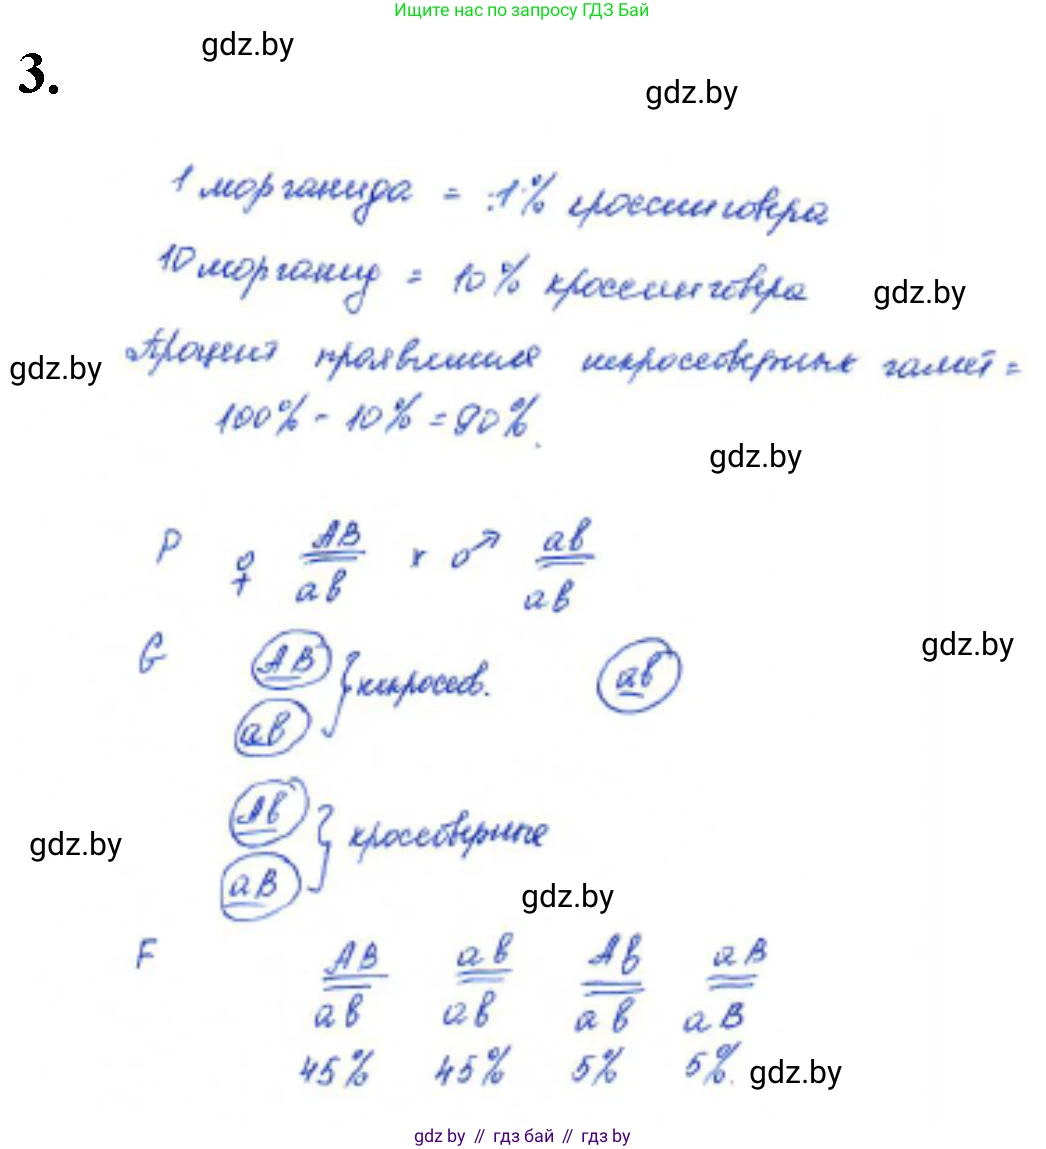 Ищите нас по запросу ГДЗ Бай
gdz.by
3.
gdz.by
1 морганида = 1% кроссинговера
10 морганид = 10% кроссинговера
gdz.by
Процент некроссоверных гамет =
gdz.by
100% - 10% = 90%.
gdz.by
P ♀ AB x ♂ ab
ab ab
G AB } некроссов. ab
gdz.by
ab
Ab } кроссоверные
gdz.by
aB
gdz.by
F AB ab Ab aB
ab ab ab aB
45% 45% 5% 5%.
gdz.by
gdz by // гдз бай // гдз by